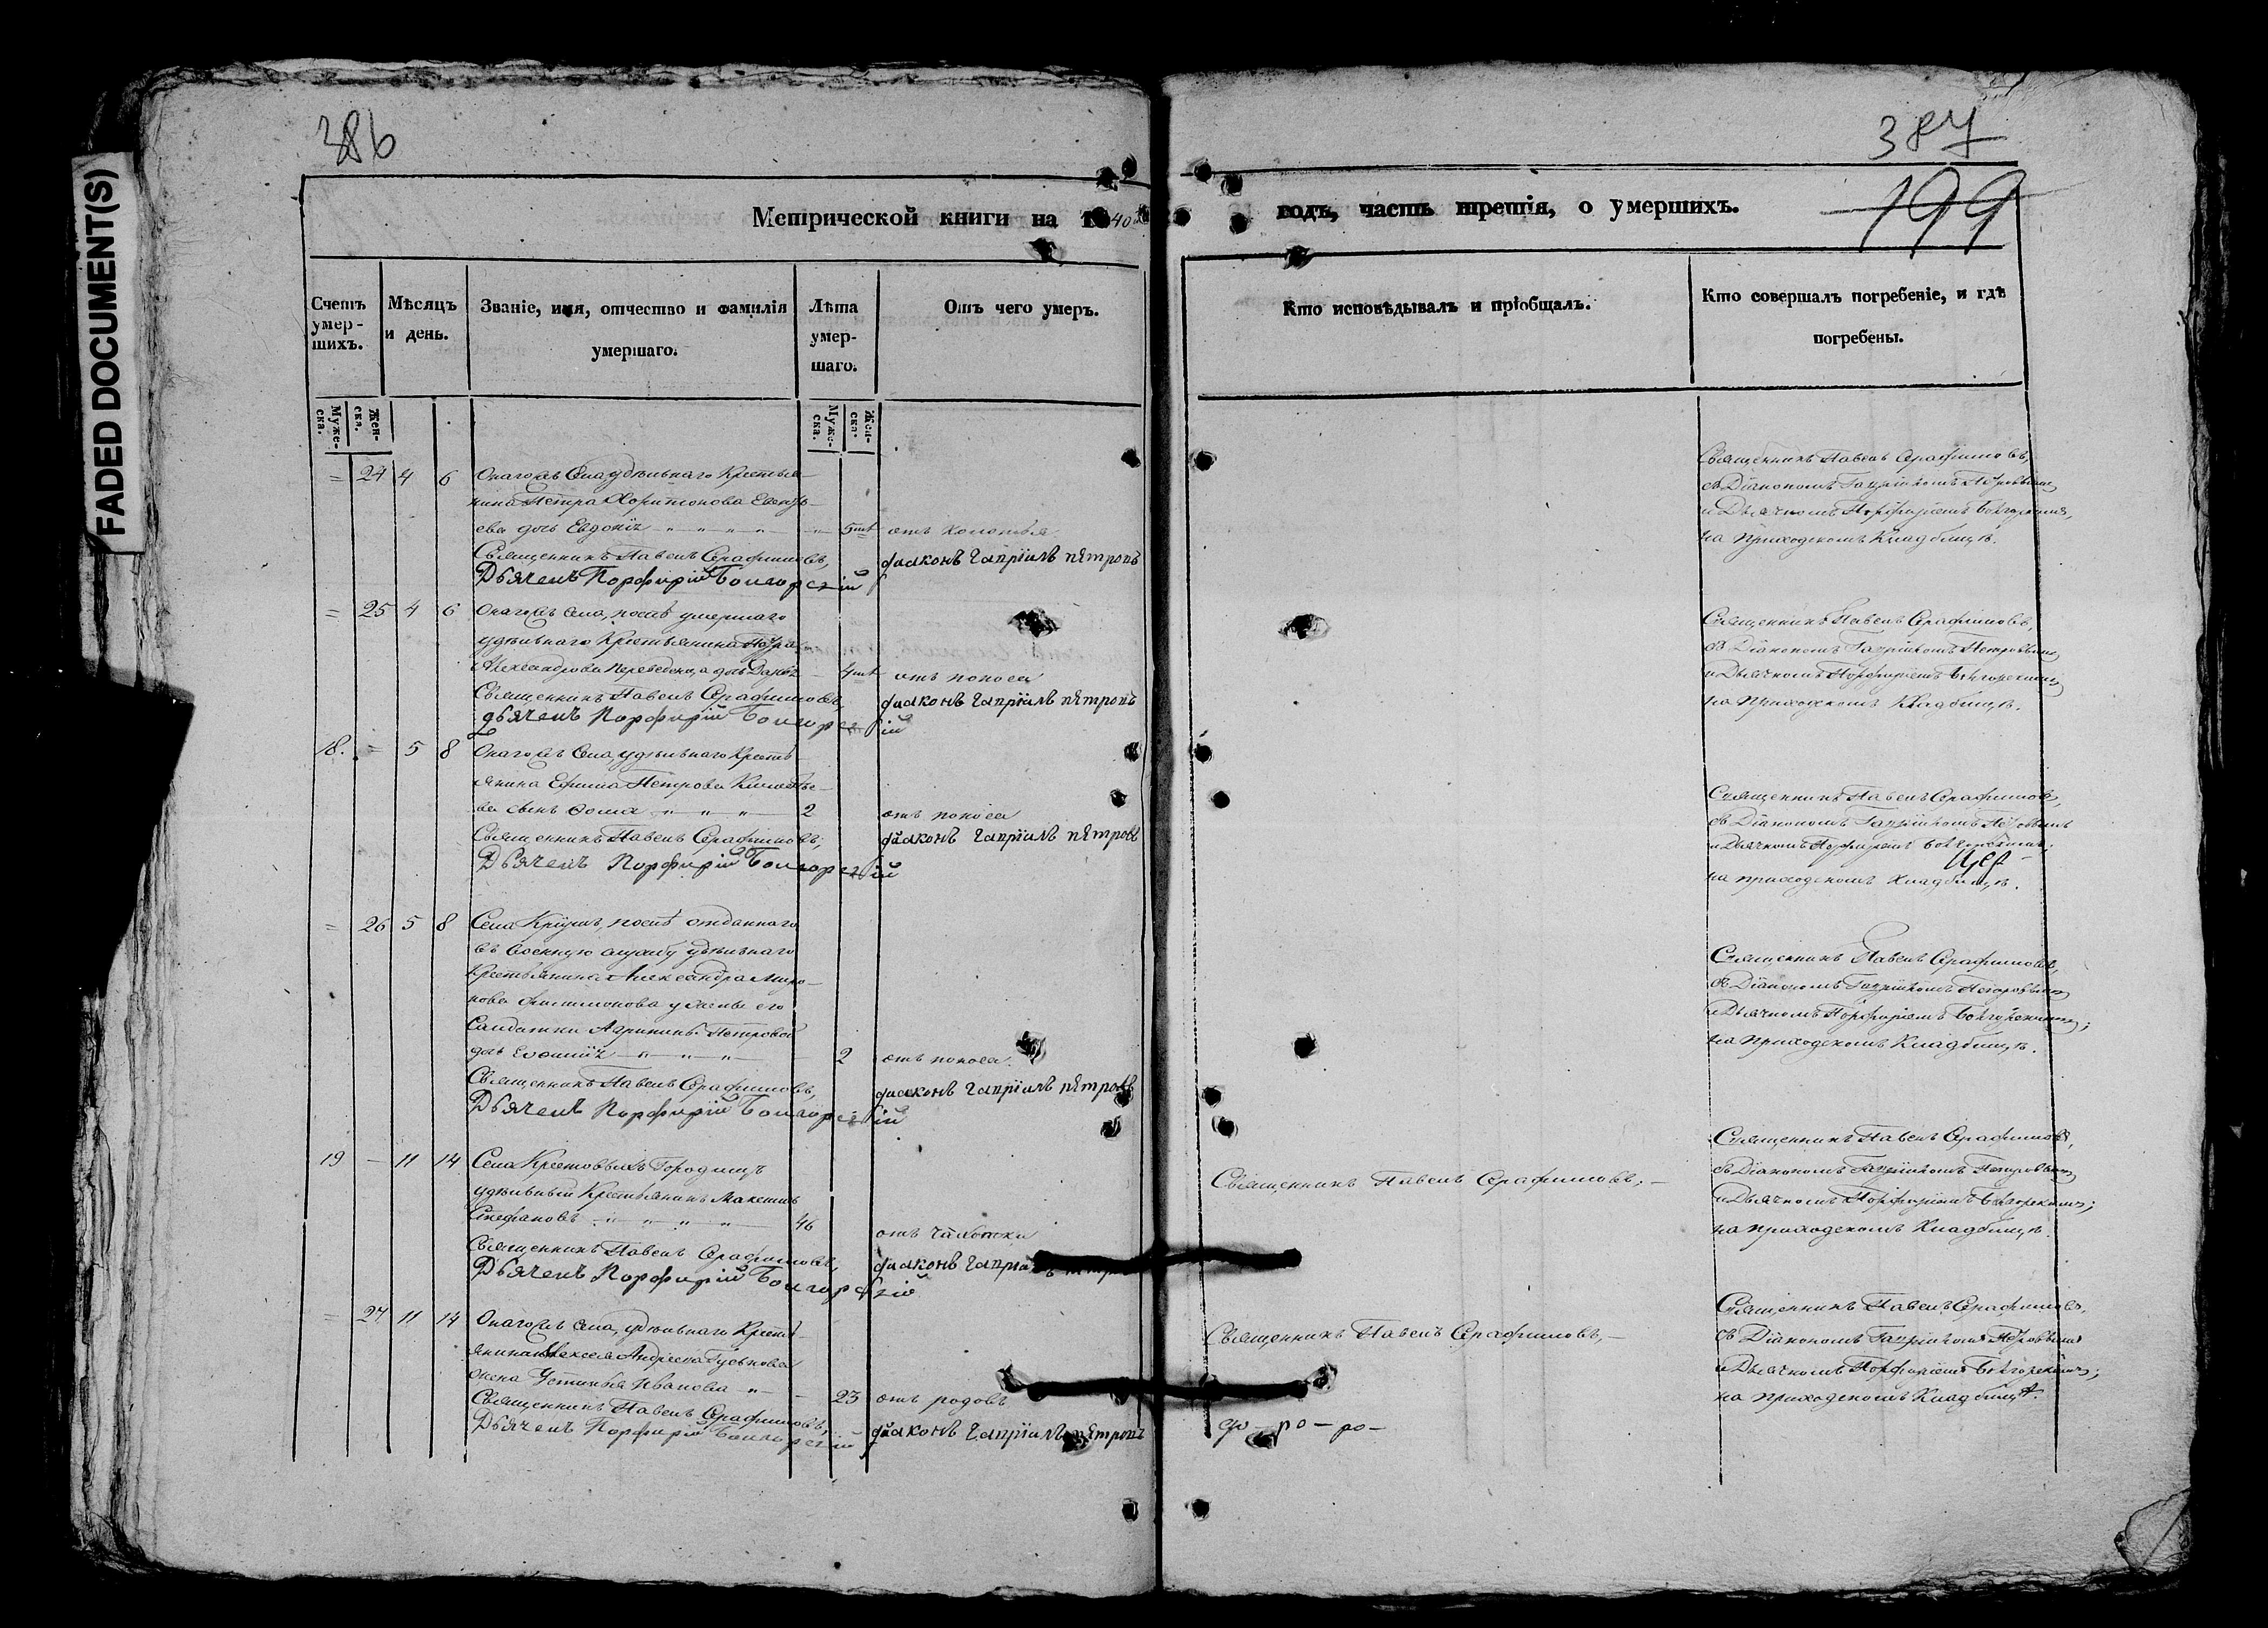 FADED DOCUMENT(S)
386
387
199
Метрической книги на 1840
годъ, часть третія, о умершихъ.
Счетъ умер-
шихъ.
Мѣсяцъ
и день.
Званіе, имя, отчество и фамилія
умершаго.
Лѣта
умер-
шаго.
Отъ чего умеръ.
Кто исповѣдывалъ и пріобщалъ.
Кто совершалъ погребеніе, и гдѣ
погребены.
Муже-
ска.
Жен-
ска.
Муже-
ска.
Жен-
ска.
= 24 4 6 Онагожъ села, удѣльнаго Крестья-
нина Петра Харитонова
дочь Евдокія 5 отъ
Священникъ Павелъ Серафимовъ,
Дьячекъ Порфирій
діаконъ Гавріилъ Петровъ
Священникъ Павелъ Серафимовъ,
съ Діакономъ Гавріиломъ Петровымъ
и Дьячкомъ Порфиріемъ
на Приходскомъ Кладбищѣ.
= 25 4 6 Онагожъ села, послѣ умершаго
удѣльнаго Крестьянина Петра
Александрова дочь Дарья 4 отъ поноса
Священникъ Павелъ Серафимовъ,
дьячекъ Порфирій
діаконъ Гавріилъ Петровъ
Священникъ Павелъ Серафимовъ,
съ Діакономъ Гавріиломъ Петровымъ
и Дьячкомъ Порфиріемъ
на Приходскомъ Кладбищѣ.
18. = 5 8 Онагожъ села, удѣльнаго Кресть-
янина Ефима Петрова
сынъ Ѳома 2 отъ поноса
Священникъ Павелъ Серафимовъ;
Дьячекъ Порфирій
діаконъ Гавріилъ Петровъ
Священникъ Павелъ Серафимовъ,
съ Діакономъ Гавріиломъ Петровымъ
и Дьячкомъ Порфиріемъ
Цер-
на приходскомъ Кладбищѣ.
= 26 5 8 Села послѣ отданнаго
въ военную службу удѣльнаго
Крестьянина Александра Миро-
нова Филимонова у жены его
Салдатки Агрипины Петровой
дочь 2 отъ поноса
Священникъ Павелъ Серафимовъ,
Дьячекъ Порфирій
діаконъ Гавріилъ Петровъ
Священникъ Павелъ Серафимовъ,
съ Діакономъ Гавріиломъ Петровымъ
и Дьячкомъ Порфиріемъ
на Приходскомъ Кладбищѣ.
19 – 11 14 Села Крестовыхъ Городищъ
удѣльный Крестьянинъ Макс
Стефановъ 46 отъ чахотки
Священникъ Павелъ Серафимовъ,
Дьячекъ Порфирій
діаконъ Гавріилъ
Священникъ Павелъ Серафимовъ; –
Священникъ Павелъ Серафимовъ,
съ Діакономъ Гавріиломъ Петровымъ
и Дьячкомъ Порфиріемъ
на приходскомъ Кладбищѣ.
= 27 11 14 Онагожъ села, удѣльнаго Кресть-
янина Алексея Андреева Гуськова
жена Устинья Иванова 23 отъ родовъ
Священникъ Павелъ Серафимовъ,
Дьячекъ Порфирій
діаконъ Гавріилъ Петровъ
Священникъ Павелъ Серафимовъ, –
– ро – ро –
Священникъ Павелъ Серафимовъ,
съ Діакономъ Гавріиломъ Петровымъ
и Дьячкомъ Порфиріемъ
на приходскомъ Кладбищѣ.